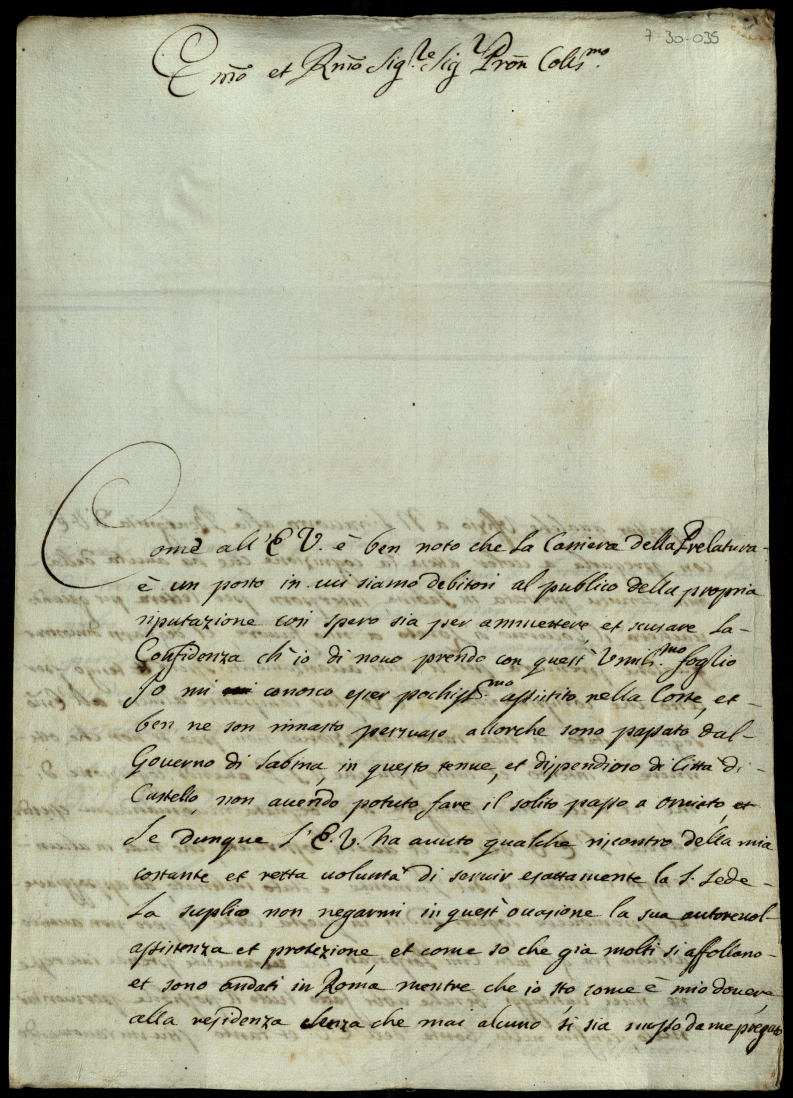 7 30-035
Emo et Rmo Sigre Sigr Pron Colmo.
Come all'E V. è ben noto che la Carriera della Prelatura
è un posto in cui siamo debitori al publico della propria
riputazione cosi spero sia per ammettere, et scusare la
Confidenza ch'io di novo prendo con quest' Umilmo. foglio
Io mi conosco esser pochissmo. assistito nella Corte, et
ben ne son rimasto persuaso allorche sono passato dal
Governo di Sabina in questo tenue, et dispendioso di Città di
Castello, non avendo potuto fare il solito passo a Orvieto, et
se dunque l'E. V. ha avuto qualche riscontro della mia
costante et retta voluntà di servir esattamente la S. Sede
La suplico non negarmi in quest' occasione la sua autorevol
assistenza et protezione, et come so che gia molti si affollano
et sono andati in Roma mentre che io sto come è mio dovere
alla residenza senza che mai alcuno si sia mosso da me pregato